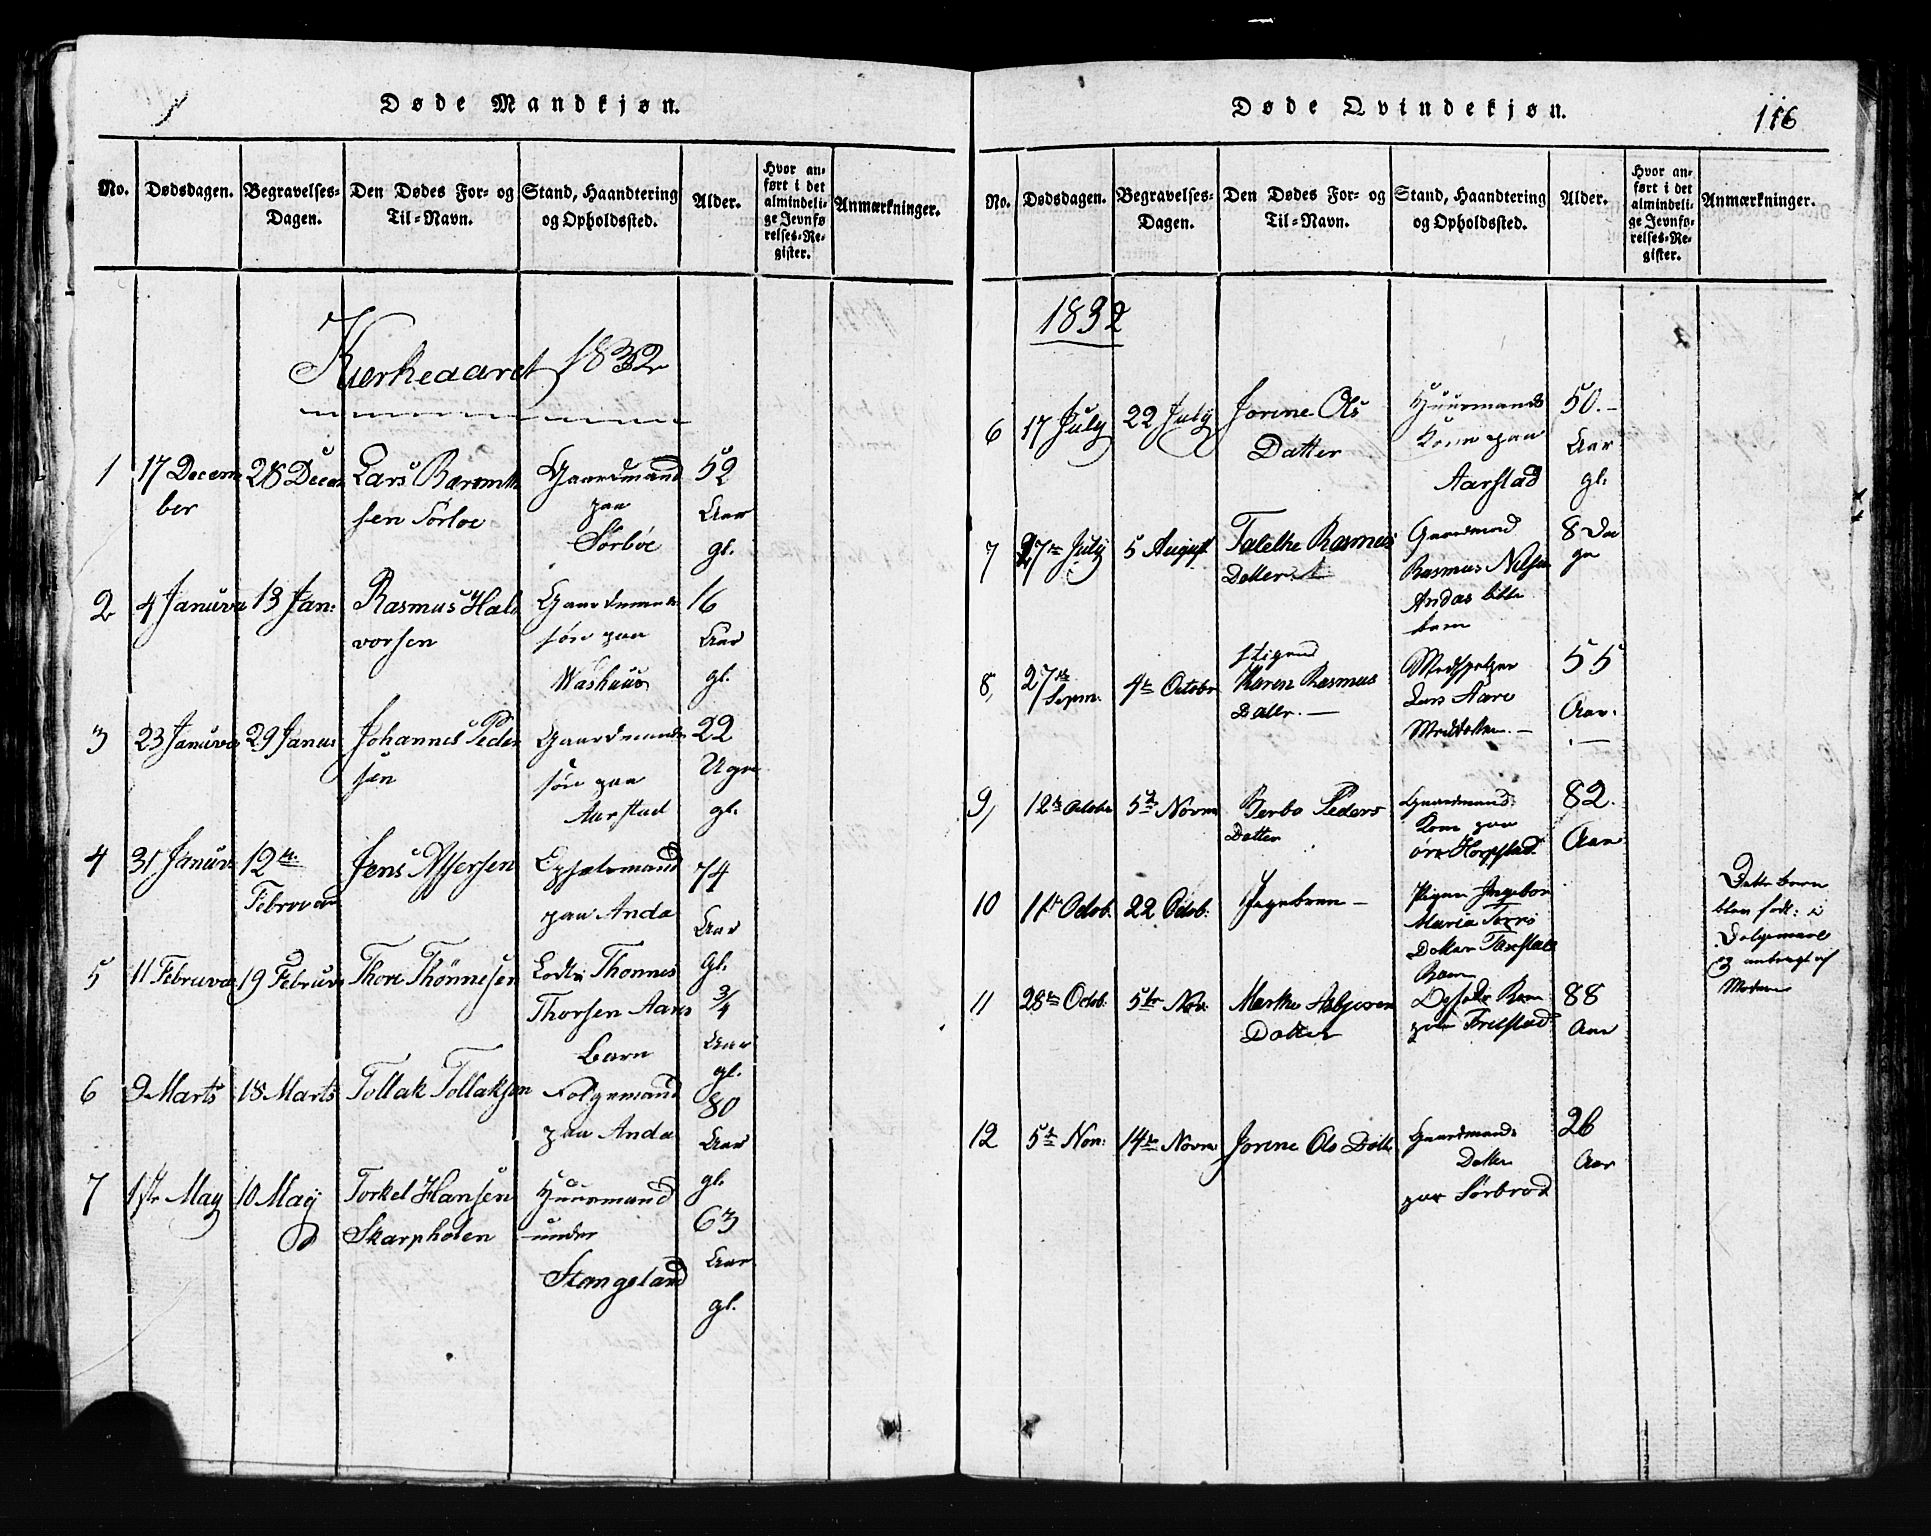 Døde Mandkjøn.
No.
Dødsdagen.
Begravelses-
Dagen.
Den Dødes For- og
Til-Navn.
Stand, Haandtering
og Opholdssted.
Alder.
Hvor an-
ført i det
almindeli-
ge Jevnfø
relses-Re-
gister.
Anmærkninger.
Kierkeaaret 1832
1
17 Decem
ber
28 Decem
Lars
sen Sørboe
Gaardmand
paa
Sørboe
52
Aar
gl.
2
4 Januva
13 Jan:
Rasmus Hal
vorsen
Gaardmands
søn paa
Washuus
16
Aar
gl.
3
23 Januva
29 Janus
Johannes Peder
sen
Gaardmands
søn paa
Aarstad
22
Uger
gl.
4
31 Januva
12te
Februvar
Jens Assersen
Opsætsmand
paa Anda
74
Aar
gl.
5
11 Februva
19 Februva
Thore Thönnesen
Thonnes
Thorsen Aares
Barn
3/4
Aar
gl.
6
9 Marts
18 Marts
Tollak Tollaksen
Folgemand
paa Anda
80
Aar
gl.
7
1ste May
10 May
Torkel Hansen
Skarpholen
Huusmand
under
Stangeland
63
Aar
gl.
Døde Qvindekjøn.
116
No.
Dødsdagen.
Begravelses-
Dagen.
Den Dødes For- og
Til-Navn.
Stand, Haandtering
og Opholdssted.
Alder.
Hvor an-
ført i det
almindeli-
ge Jevnfø-
relses-Re-
gister.
Anmærkninger.
1832
6
17 July
22 July
Jorine Ols
Datter
Huusmands
Kone paa
Aarstad
50.-
Aar
gl.
7
27de July
5 August
Talethe Rasmus
Datter
Gaardmand
Rasmus Nilsen
Andas lille
barn
8 Da
ge
8,
27de
Sepm.
4de Octobr
Karen Rasmus
Datter. —
Lars Aare
55
Aar.
9,
12te Octobr
5te Novm
Berbo Peders
Datter
Gaardmands
Kone paa
82.
Aar
10
11te Octob.
22 Octob.
Pigen Ingebor
Maria
Datter
Barn
Dette barn
blev født: i
Dølgsmaal
og ombragt af
Moderen
11
28de Octob.
5te Nov.
Marthe Asbjorn
Datter
Kone
paa
88
Aar
12
5te Nov:
14de Novm
Jorine Ols Datte
Gaardmands
Datter
paa
26
Aar